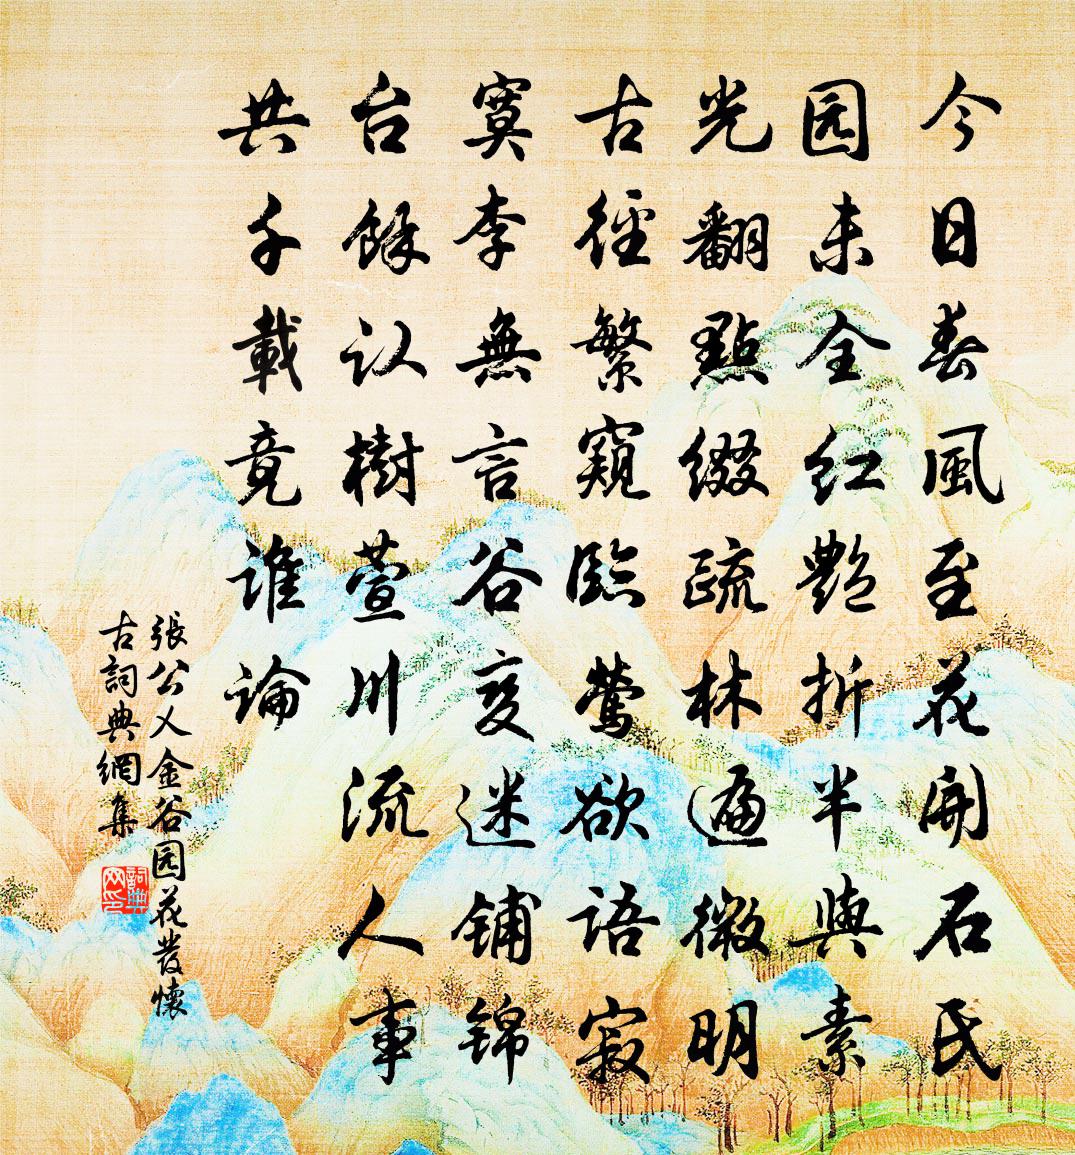 今日春風至花開石氏
园未全红艷折半與素
光翻點缀疏林遍微明
古徑繁窺臨鶯欲語寂
寞李無言谷变迷铺锦
台餘认樹萱川流人事
共千載竟谁论
張公乂金谷园花發懷
古詞典網集
詞典